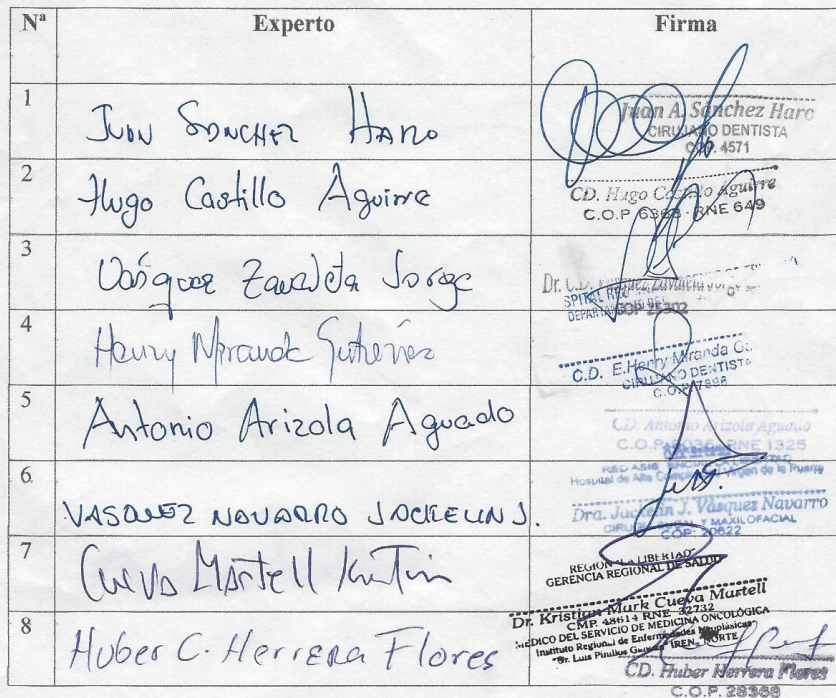 Nª Experto Firma
1 Juan Sánchez Haro
Juan A. Sánchez Haro
CIRUJANO DENTISTA
COP. 4571
2 Hugo Castillo Aguirre
CD. Hugo Castillo Aguirre
C.O.P 6368 - RNE 649
3 Vásquez Zavaleta Jorge
Dr. C.D. Vásquez Zavaleta
COP 25302
4 Henry Miranda Gutiérrez
C.D. E.Henry Miranda
CIRUJANO DENTISTA
C.O.P. 7898
5 Antonio Arizola Aguado
CD. Antonio Arizola Aguado
C.O.P. RNE 1325
Hospital de Alta Virgen de la Puerta
6 VASQUEZ NAVARRO JACKELIN J.
Dra. Jackelin J. Vásquez Navarro
CIRUGÍA BUCAL Y MAXILOFACIAL
COP: 20622
7 Cueva Martell Kristian
REGION "LA LIBERTAD"
GERENCIA REGIONAL DE SALUD
Dr. Kristian Mark Cueva Martell
CMP. 48614 RNE 32732
MEDICO DEL SERVICIO DE MEDICINA ONCOLÓGICA
Instituto Regional de Enfermedades Neoplásicas
"Dr. Luis Pinillos IREN NORTE
8 Huber C. Herrera Flores
CD. Huber Herrera Flores
C.O.P. 28368